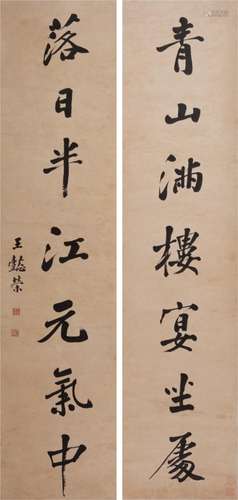 青山满樓宴坐處
落日半江元氣中
王懿榮